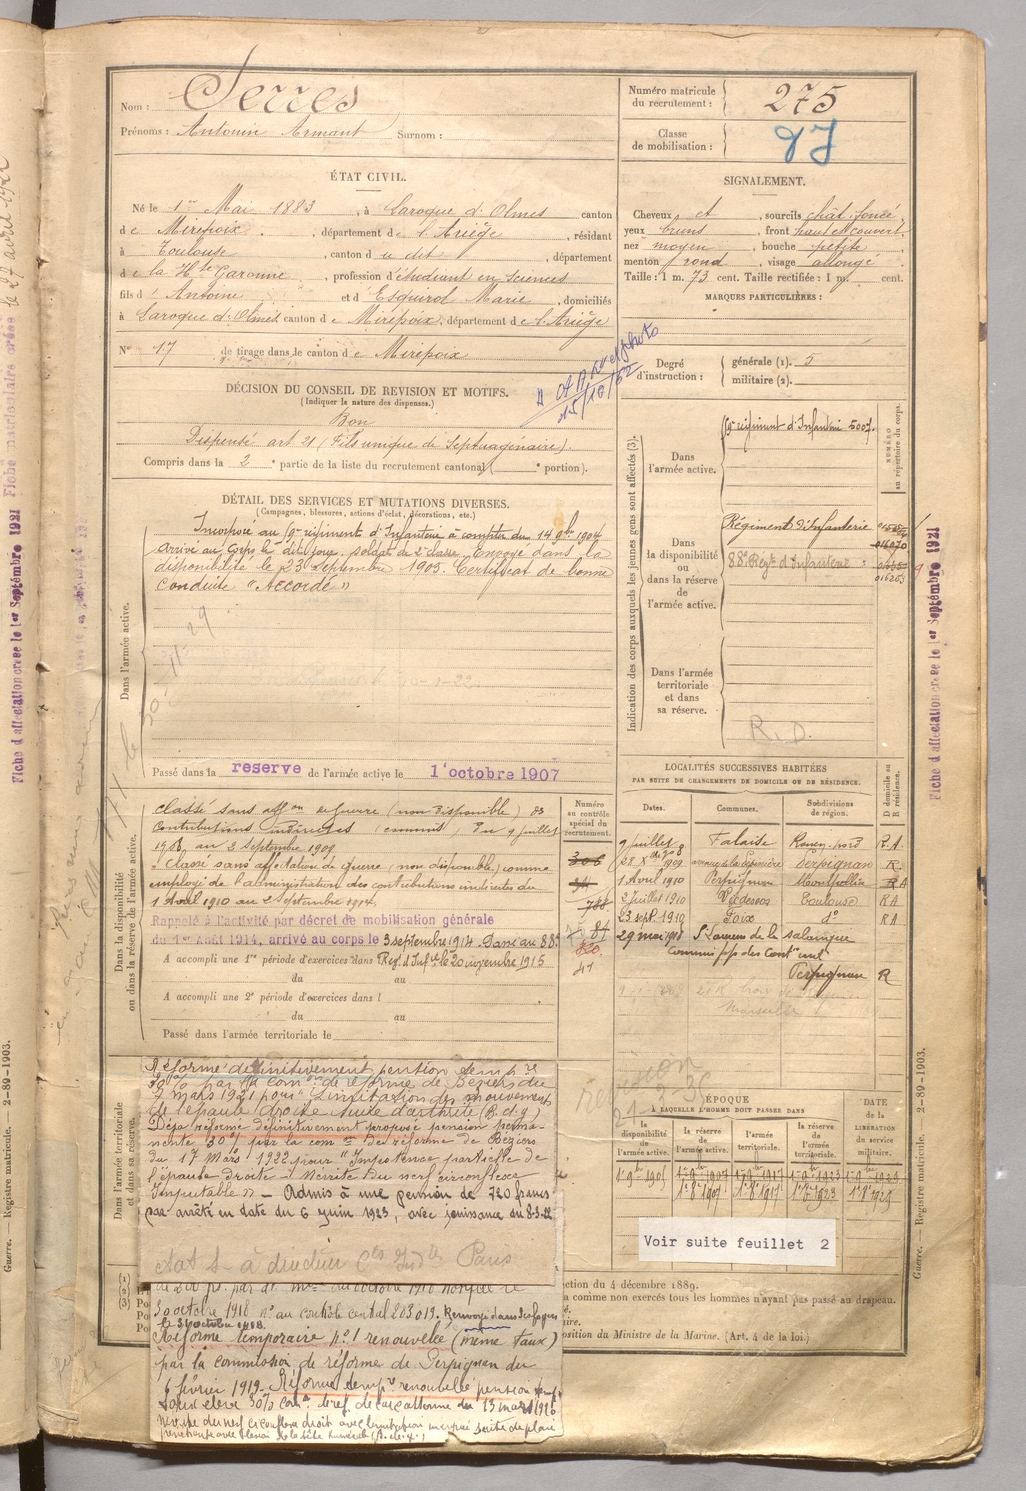 Nom : Serres
Prénoms : Antonin Armant Surnom :
Numéro matricule du recrutement : 275
Classe de mobilisation :
ÉTAT CIVIL.
Né le 1er Mai 1883, à Laroque d'Olmes canton
de Mirepoix, département de l'Ariège, résidant
à Toulouse, canton du dit, département
de la Hte Garonne, profession d'étudiant en Sciences
fils d'Antoine et d'Esquirol Marie, domiciliés
à Laroque d'Olmes canton de Mirepoix, département de l'Ariège
N° 17 de tirage dans le canton de Mirepoix
SIGNALEMENT.
Cheveux et, sourcils chât. foncé,
yeux bruns, front haut et couvert,
nez moyen, bouche petite,
menton rond, visage allongé
Taille : 1 m. 73 cent. Taille rectifiée : 1 m. cent.
MARQUES PARTICULIÈRES :
Degré d'instruction : générale (1). 5
militaire (2).
15/10/52
DÉCISION DU CONSEIL DE REVISION ET MOTIFS.
(Indiquer la nature des dispenses.)
Bon
Dispensé art. 21 (Fils unique de Septuagénaire).
Compris dans la 2e partie de la liste du recrutement cantonal ( e portion).
DÉTAIL DES SERVICES ET MUTATIONS DIVERSES.
(Campagnes, blessures, actions d'éclat, décorations, etc.)
Dans l'armée active.
Incorporé au 9e régiment d'Infanterie à compter du 14 9bre 1904
arrivé au Corps le dit jour, soldat de 2e classe. Envoyé dans la
disponibilité le 23 Septembre 1905. Certificat de bonne
conduite "Accordé"
Passé dans la reserve de l'armée active le 1er octobre 1907
Indication des corps auxquels les jeunes gens sont affectés (3).
NUMÉRO au répertoire du corps.
Dans l'armée active.
9e régiment d'Infanterie 5007.
Dans la disponibilité ou dans la réserve de l'armée active.
Régiment d'Infanterie
88e Régt d'Infanterie
Dans l'armée territoriale et dans sa réserve.
R.D.
Dans la disponibilité ou dans la réserve de l'armée active.
Classé sans affon de guerre (non Disponible) des
Contributions Indirectes (commis), du 9 juillet
1908 au 2 Septembre 1909
Classé sans affectation de guerre (non disponible) comme
employé de l'administration des contributions indirectes du
1 Avril 1910 au 2 Septembre 1914,
Rappelé à l'activité par décret de mobilisation générale
du 1er Août 1914, arrivé au corps le 3 septembre 1914. Passé au 88e
A accompli une 1re période d'exercices dans Régt d'Inft le 20 novembre 1915
du au
A accompli une 2e période d'exercices dans l
du au
Passé dans l'armée territoriale le
Numéro au contrôle spécial du recrutement.
306
788
84
820
41
LOCALITÉS SUCCESSIVES HABITÉES
PAR SUITE DE CHANGEMENTS DE DOMICILE OU DE RÉSIDENCE.
Dates. Communes. Subdivisions de région. D domicile ou R résidence.
9 juillet 8 Falaise Rouen-nord R.A
28 Xbre 1909 Perpignan R.
1 Avril 1910 Perpignan Montpellier RA
2 juillet 1910 Vicdessos Toulouse RA
23 sept. 1910 Foix do RA
29 mai 1918 St Laurent de la salanque
Perpignan R
Dans l'armée territoriale et dans sa réserve.
Réformé définitivement pension tempre
30% par la comon de réforme de Béziers du
7 mars 1921 pour "Limitation des mouvements
de l'épaule droite suite d'arthrite (B.d.g)
Déjà réformé définitivement proposé pension perma-
nente 30% par la comon de réforme de Béziers
du 17 Mars 1922 pour "Impotence partielle de
l'épaule droite - Névrite du nerf circonflexe
Imputable" - Admis à une pension de 720 francs
par arrêté en date du 6 juin 1923, avec jouissance du 8-3-22
Paris
30 octobre 1918 n° au contrôle central 203019. Renvoyé dans ses foyers
le 31 octobre 1918.
Réforme temporaire n°1 renouvelée (même taux)
par la commission de réforme de Perpignan du
6 février 1919. Réforme tempre renouvelé pension temp.
taux élevé 30% comon de ref. de Carcassonne du 13 mars 1920
ÉPOQUE
À LAQUELLE L'HOMME DOIT PASSER DANS
la disponibilité de l'armée active. la réserve de l'armée active. l'armée territoriale. la réserve de l'armée territoriale. DATE de la LIBÉRATION du service militaire.
1er 9bre 1905
1er 8bre 1907 1er 8bre 1917 1er 8bre 1923 1er 8bre 1929
Voir suite feuillet 2
ction du 4 décembre 1889.
a comme non exercés tous les hommes n'ayant pas passé au drapeau.
position du Ministre de la Marine. (Art. 4 de la loi.)
Fiche d'affectation créée le 1er Septembre 1921
Fiche d'affectation créée le 1er Septembre 1921
Fiche matriculaire créée le 27 avril 1922
Guerre. — Registre matricule. — 2-89-1903.
Guerre. — Registre matricule. — 2-89-1903.